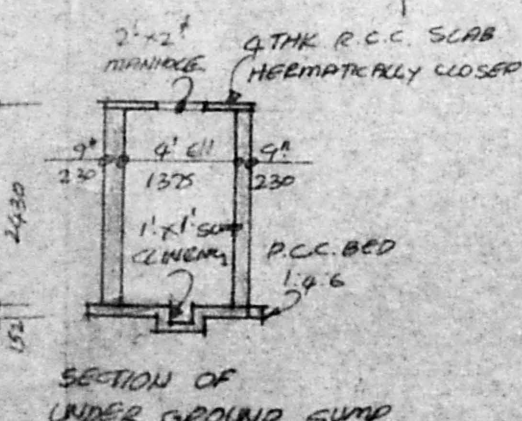 2' x 2'
MANHOLE
4 THK R.C.C. SLAB
HERMATICALLY CLOSED
9" 4' 6" 9"
230 1375 230
2430
1' x 1'
P.C.C. BED
1:4:6
152
SECTION OF
UNDER GROUND SUMP